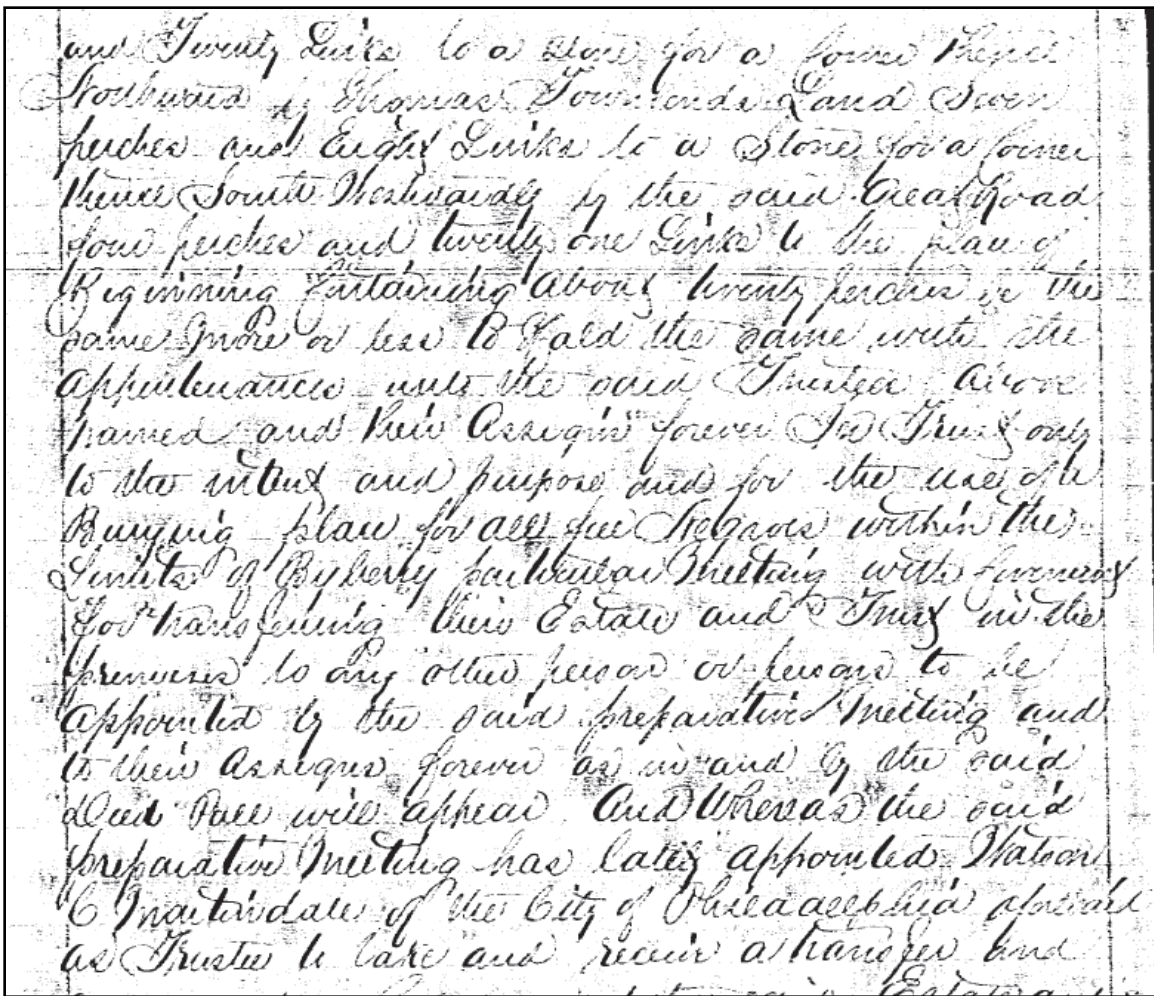 and Twenty Links to a Stone for a Corner thence
Northward by Thomas Townsends Land Seven
perches and Eight Links to a Stone for a Corner
thence South Westwardly by the said Great Road
four perches and twenty one Links to the place of
Beginning Containing About twenty perches be the
same more or less To Hold the same with the
Appurtenances unto the said Trustees Above
named and their Assigns forever In Trust only
to the intent and purpose and for the use of a
Burying place for all free Negroes within the
Limits of Byberry particular Meeting with
for transferring their Estate and Trust in the
premises to any other person or persons to be
Appointed by the said preparative Meeting and
to their Assigns forever as in and by the said
Deed Poll will appear And Whereas the said
preparative Meeting has lately appointed Watson
C Martindale of the City of Philadelphia aforesaid
as Trustee to take and receive a transfer and
Estate and